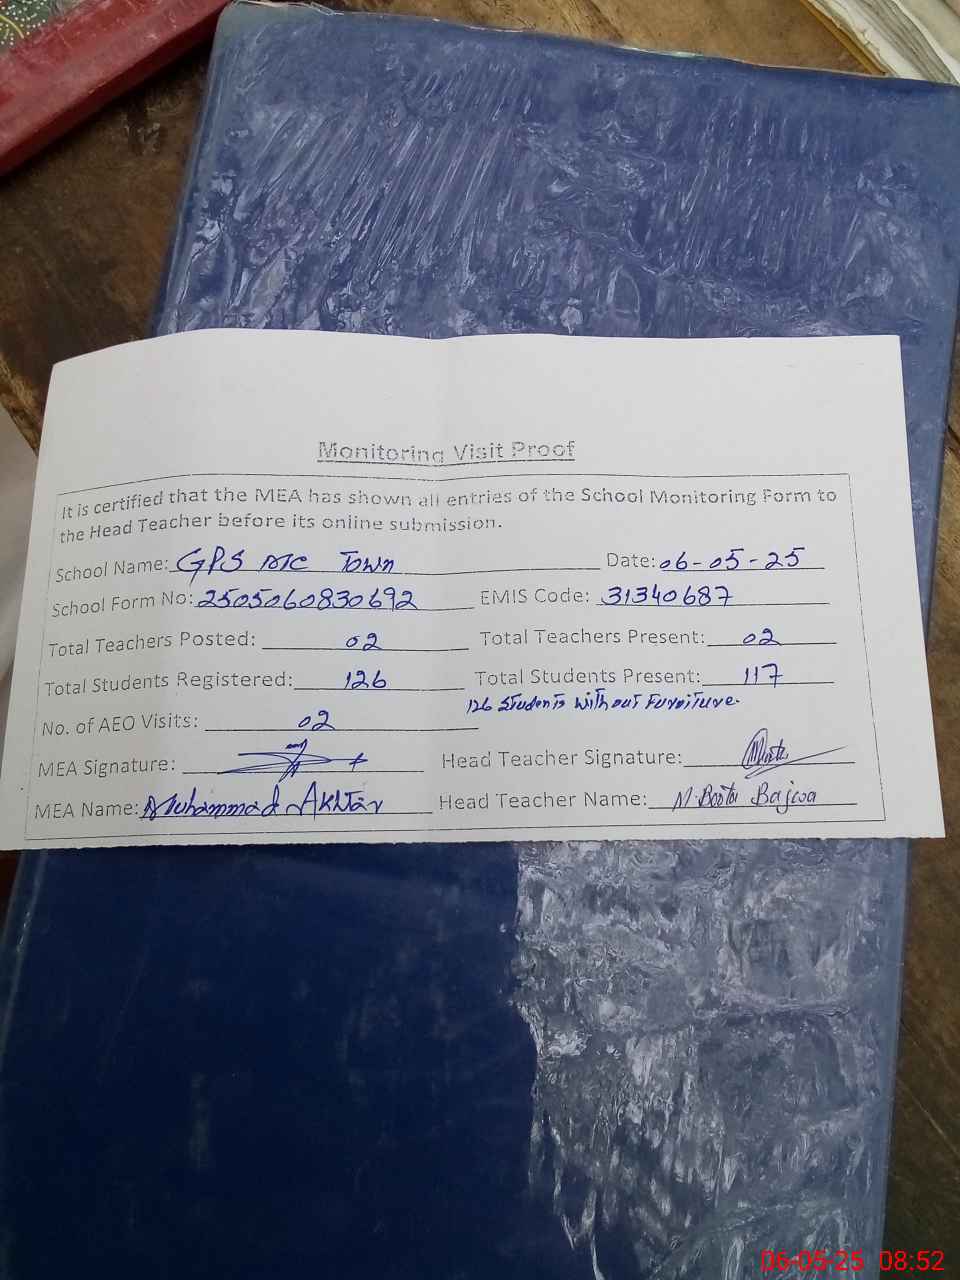 Monitoring Visit Proof
It is certified that the MEA has shown all entries of the School Monitoring Form to
the Head Teacher before its online submission.
School Name: GPS Town Date: 06-05-25
School Form No: 2505060830692 EMIS Code: 31340687
Total Teachers Posted: 02 Total Teachers Present: 02
Total Students Registered: 126 Total Students Present: 117
126 Students without Furniture.
No. of AEO Visits: 02
MEA Signature: Head Teacher Signature:
MEA Name: Muhammad Akhtar Head Teacher Name: M. Boota Bajwa
06-05-25 08:52